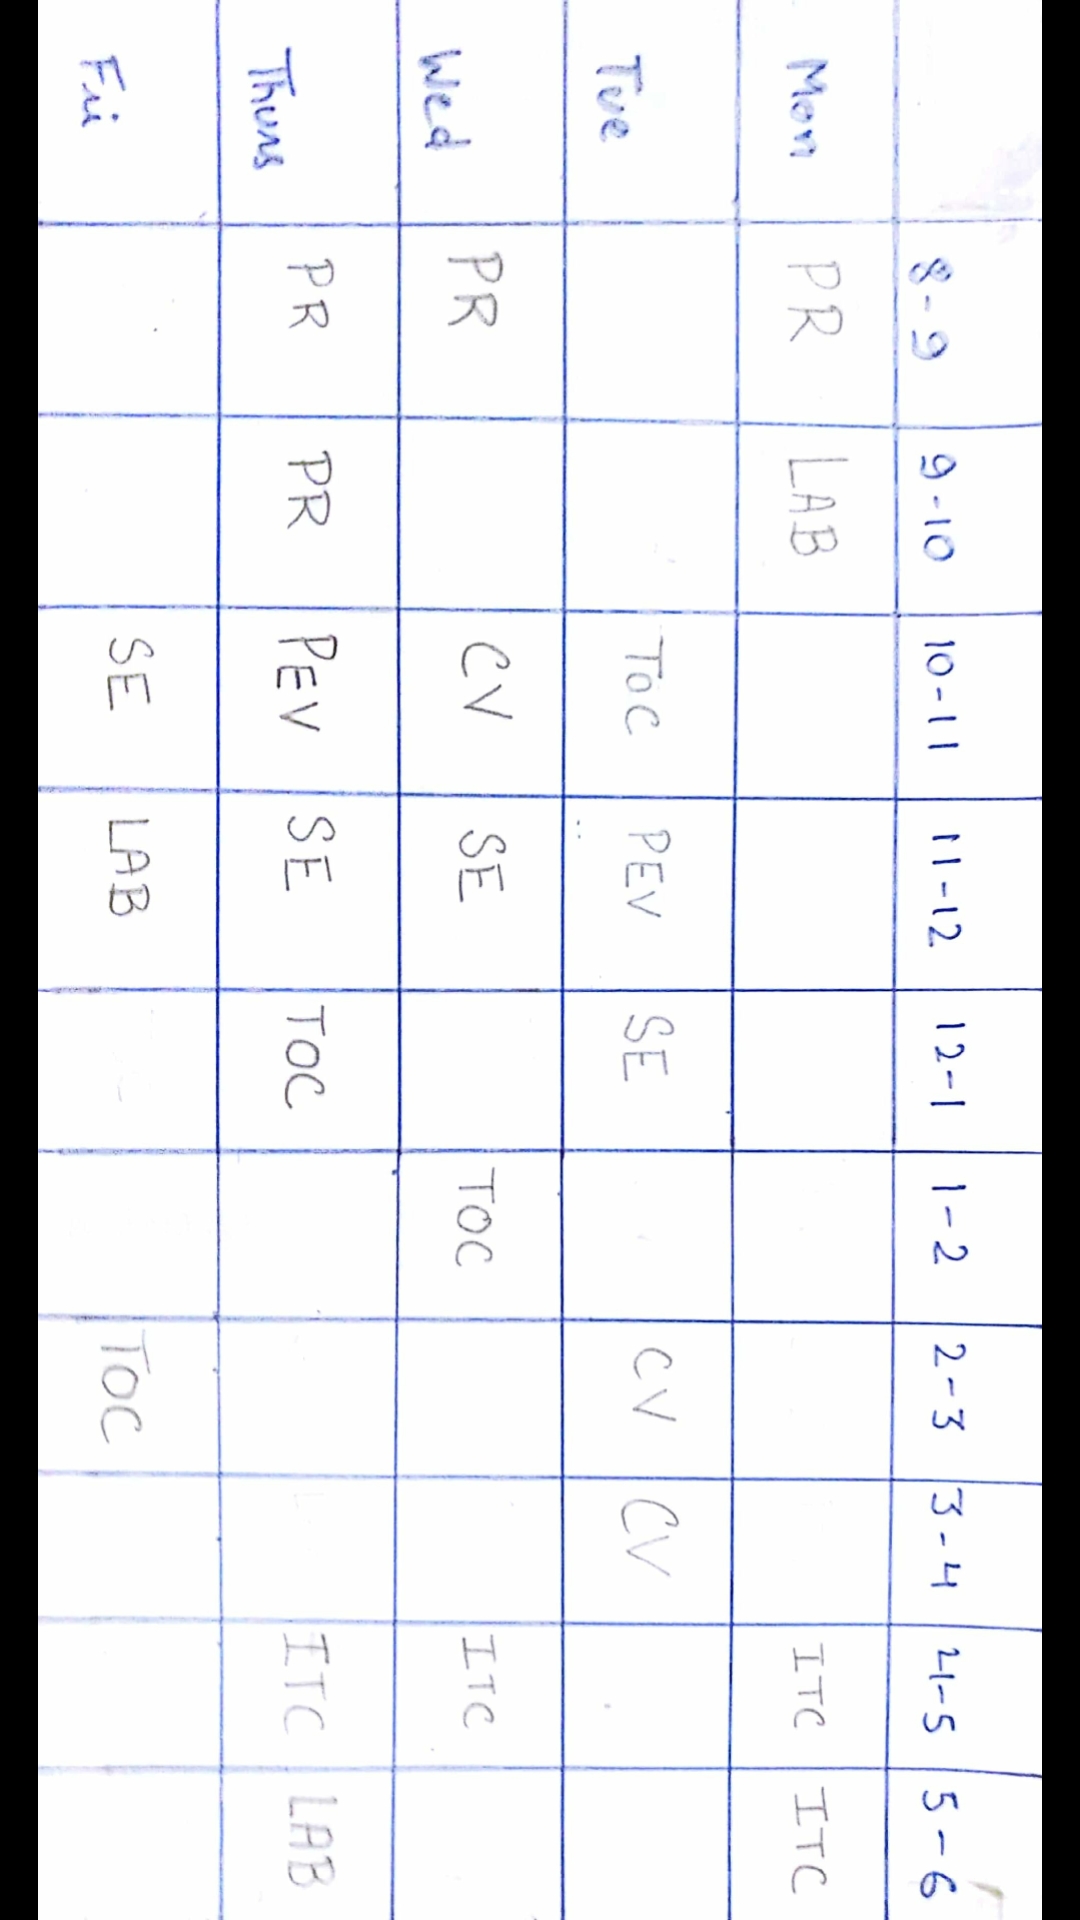 8-9 9-10 10-11 11-12 12-1 1-2 2-3 3-4 4-5 5-6
Mon PR LAB ITC ITC
Tue TOC PEV SE CV CV
Wed PR CV SE TOC ITC
Thurs PR PR PEV SE TOC ITC LAB
Fri SE LAB TOC